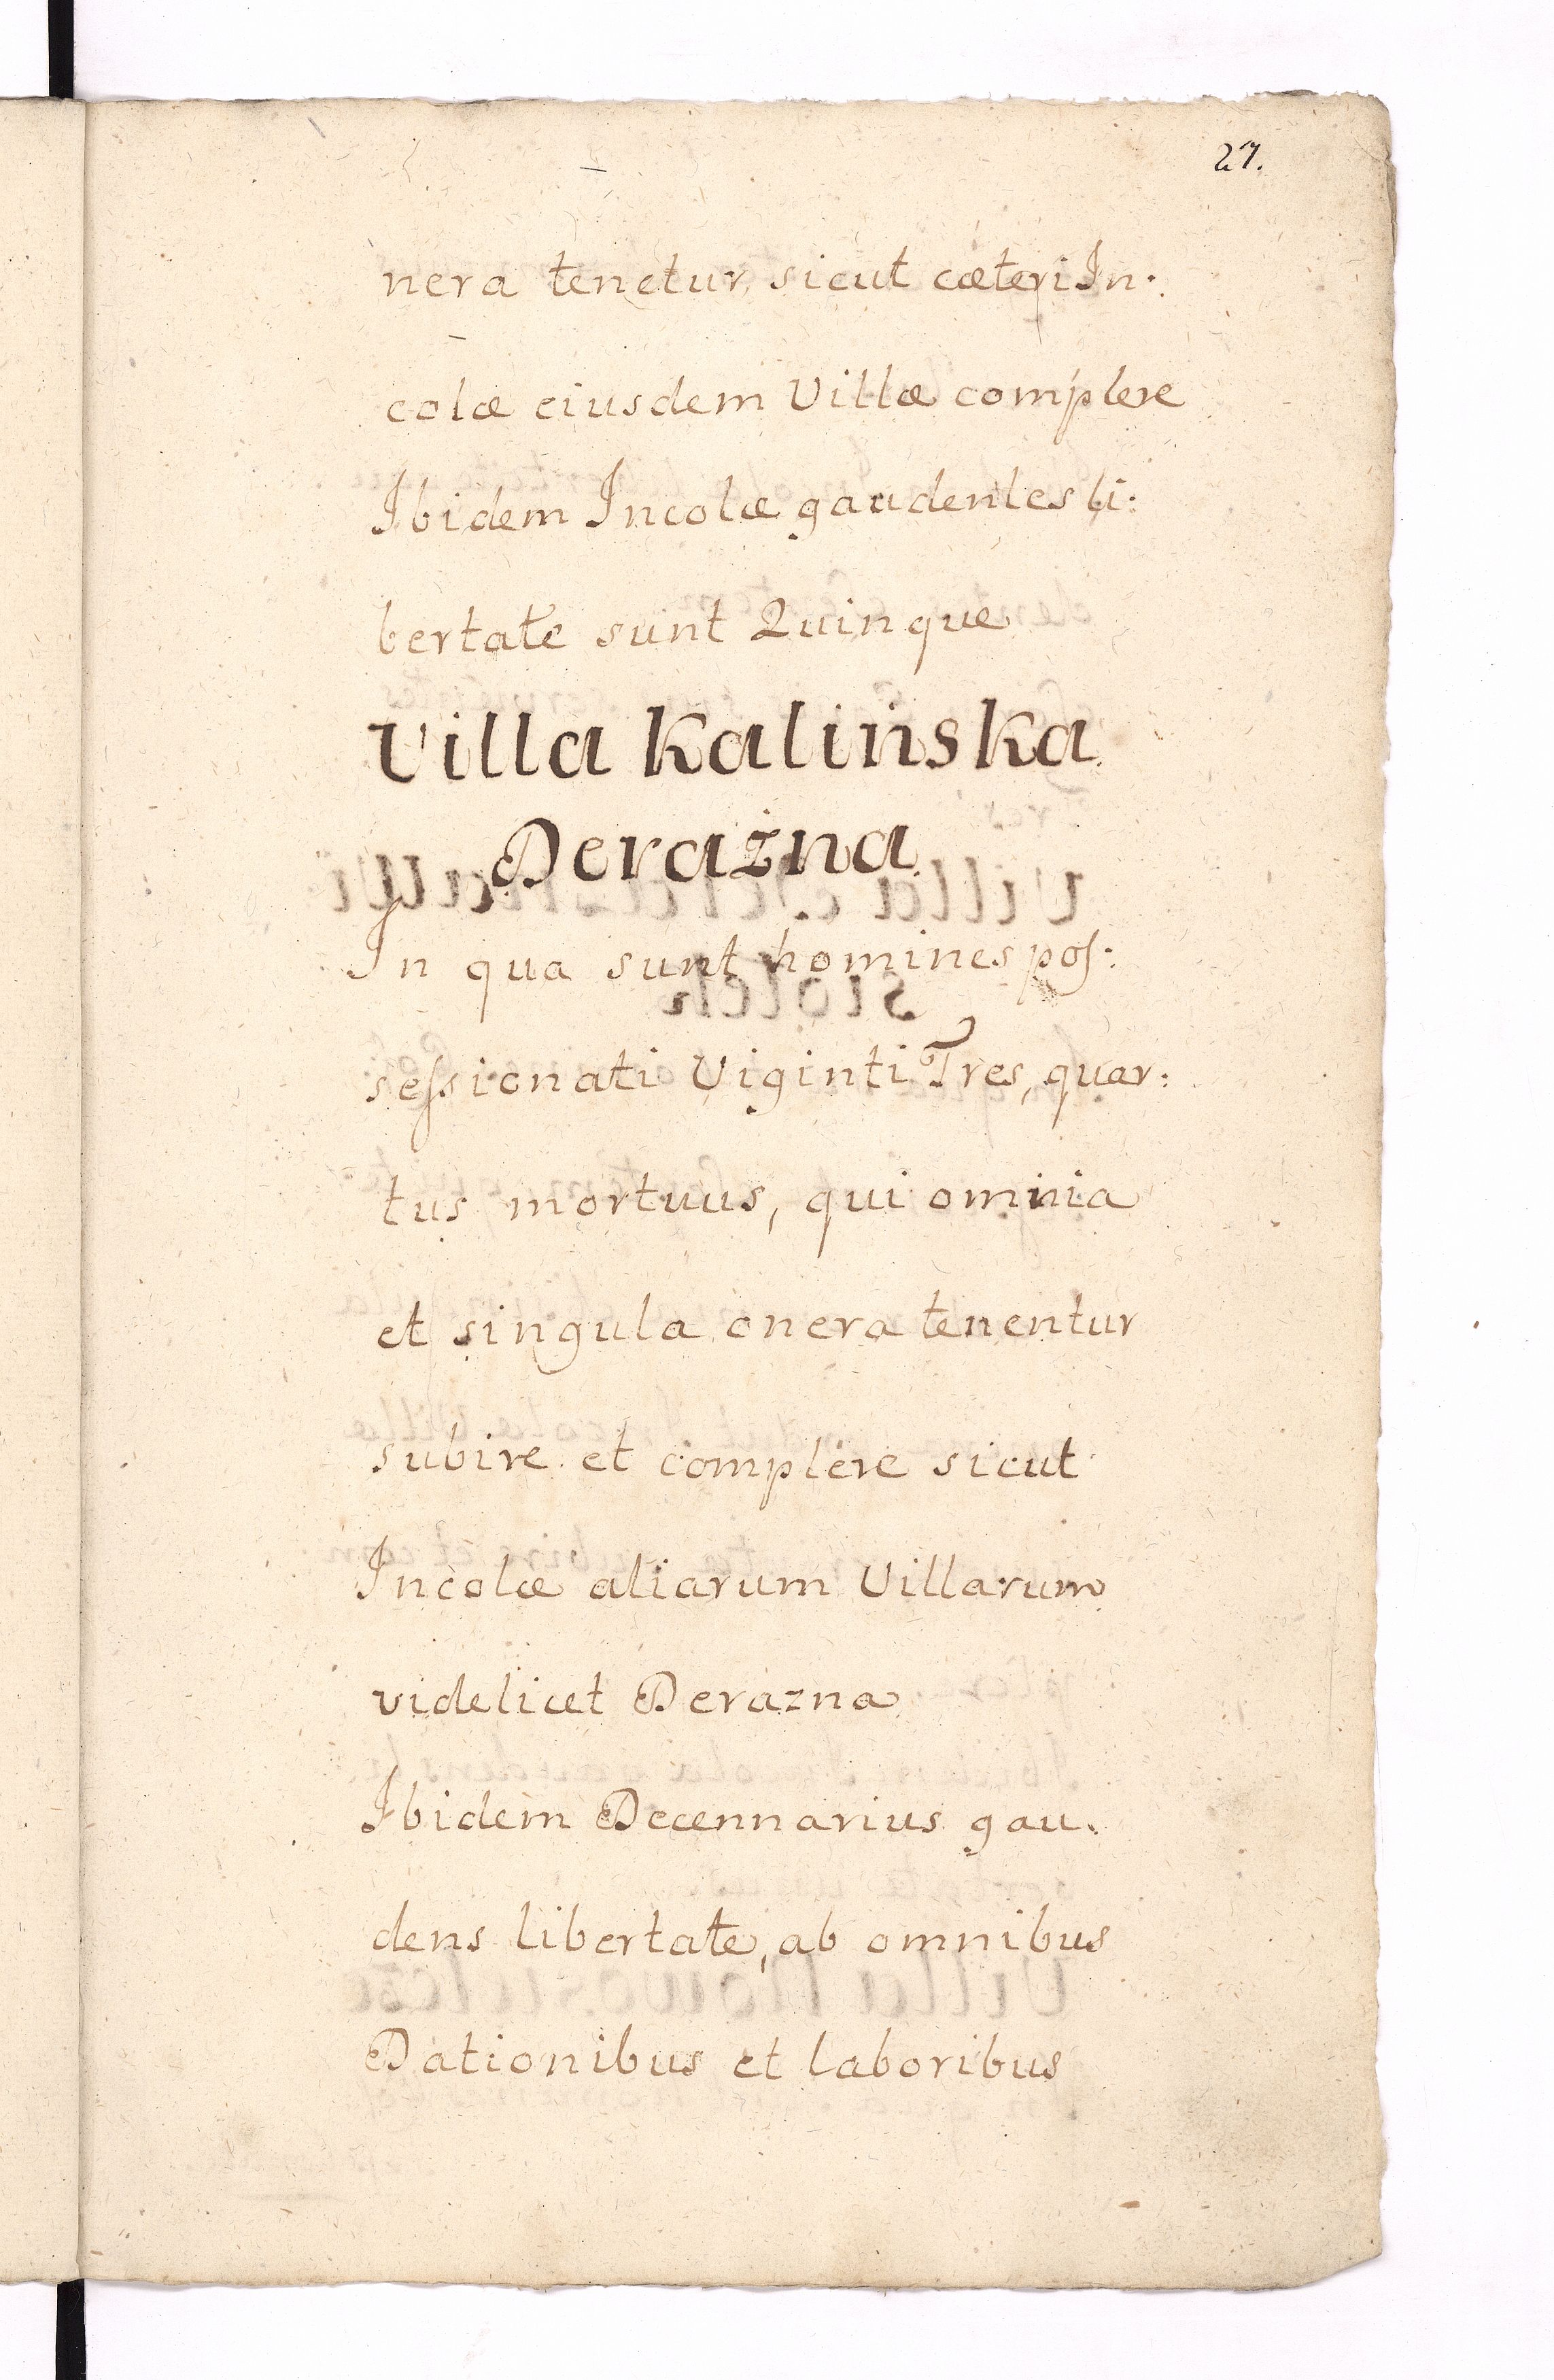 27.
nera tenetur, sicut cæteri In:
colæ eiusdem Villæ complere
Ibidem Incolæ gaudentes li:
bertate sunt Quinque
Villa Kalinska
Derażna
In qua sunt homines pos:
sessionati Viginti Tres, quar:
tus mortuus, qui omnia
et singula onera tenentur
subire et complere sicut
Incolæ aliarum Villarum
videlicet Derazna
Ibidem Decennarius gau:
dens libertate, ab omnibus
Dationibus et laboribus